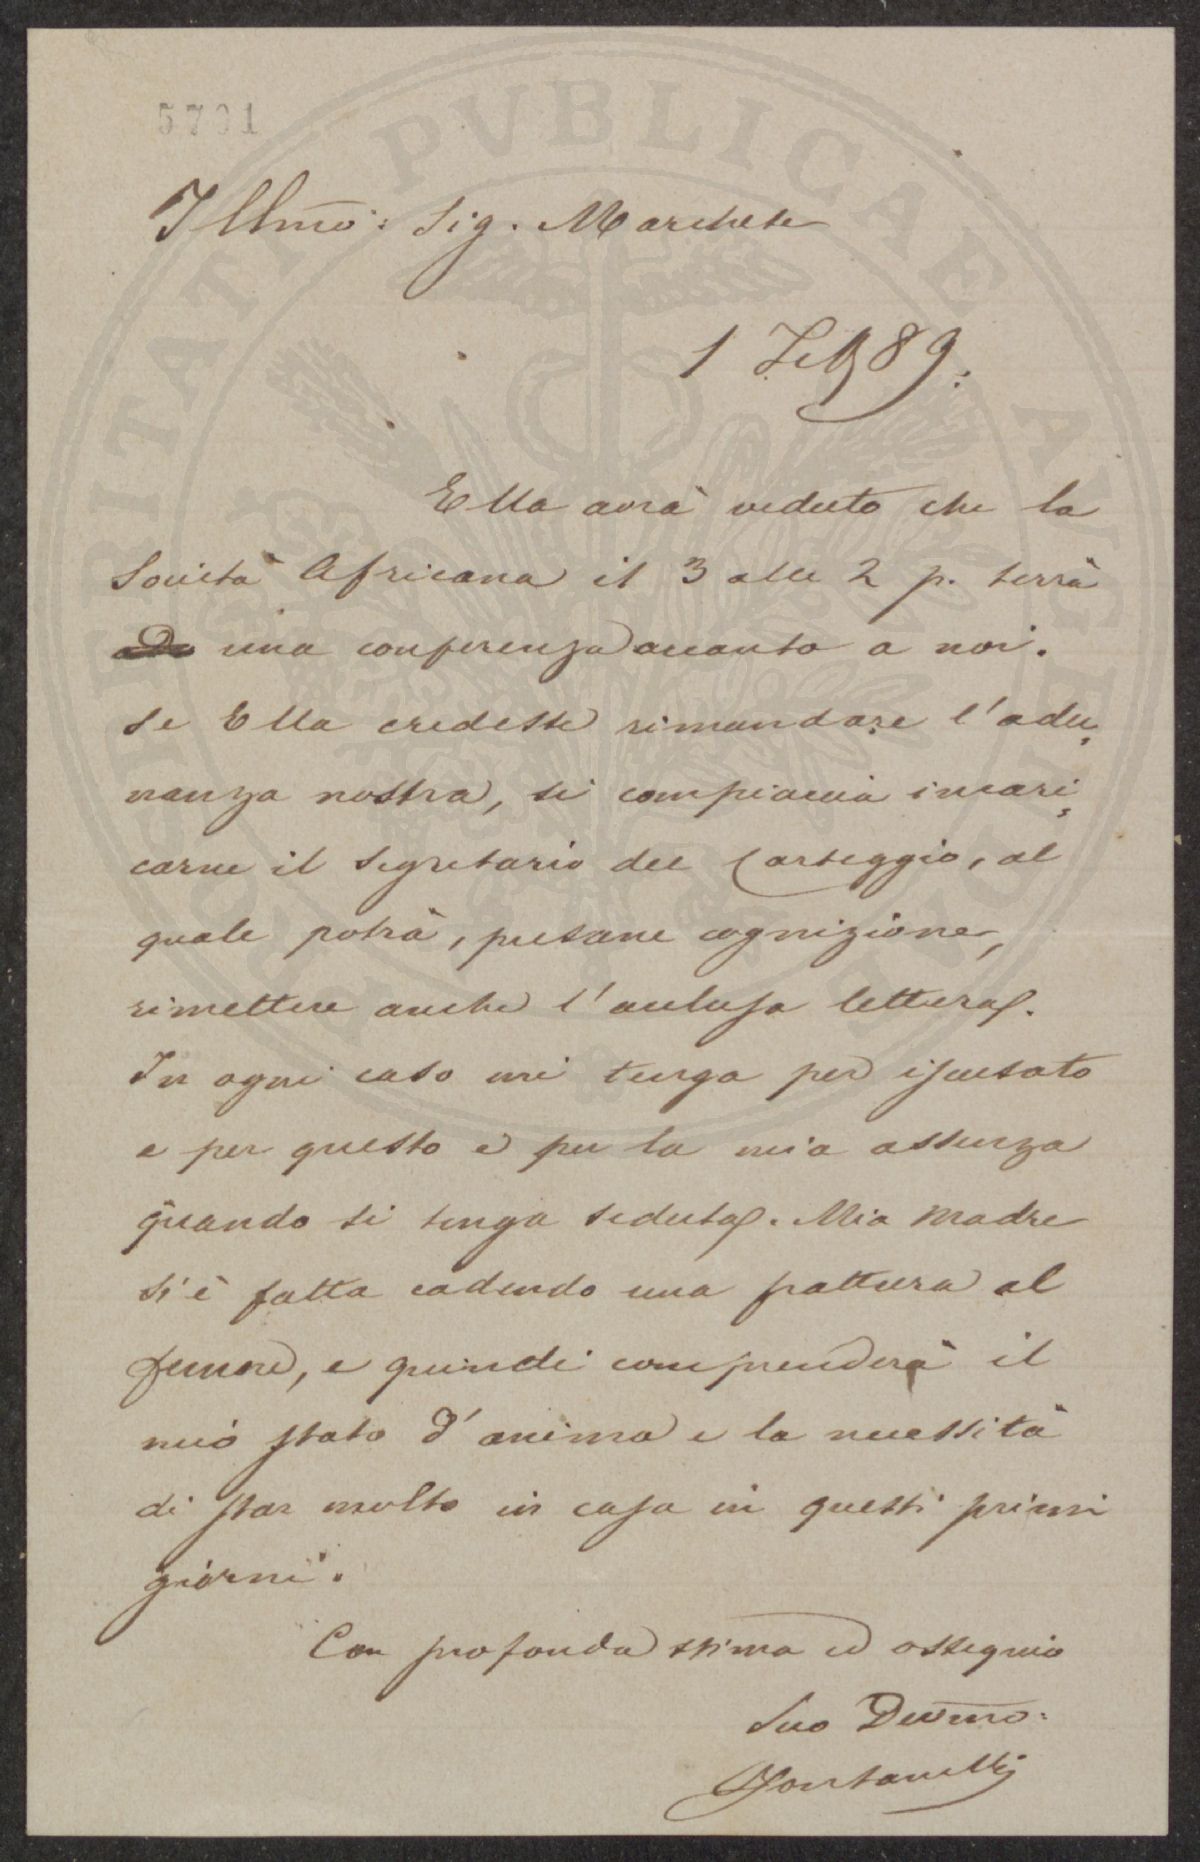 5701
Illmo: Sig. Marchese
1 Feb 89.
Ella avrà veduto che la
Società Africana il 3 alle 2 p. terrà
una conferenza accanto a noi.
Se Ella credesse rimandare l'adu,
nanza nostra, si compiaccia incari,
carne il Segretario del Carteggio, al
quale potrà, presane cognizione,
rimettere anche l'acclusa lettera.
In ogni caso mi tenga per iscusato
e per questo e per la mia assenza
quando si tenga seduta. Mia madre
si è fatta cadendo una frattura al
femore, e quindi comprenderà il
mio stato d'animo e la necessità
di star molto in casa in questi primi
giorni.
Con profonda stima ed ossequio
Suo Devmo:
Fontanelli
PVBLICAE